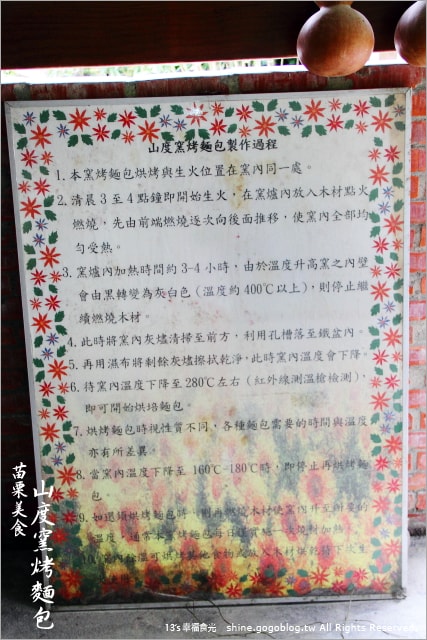 山度窯烤麵包製作過程
1. 本窯烤麵包烘烤與生火位置在窯內同一處。
2. 清晨 3 至 4 點鐘即開始生火，在窯爐內放入木材點火
燃燒，先由前端燃燒逐次向後面推移，使窯內全部均
勻受熱。
3. 窯爐內加熱時間約 3-4 小時，由於溫度升高窯之內壁
會由黑轉變為灰白色（溫度約 400℃以上），則停止繼
續燃燒木材。
4. 此時將窯內灰燼清掃至前方，利用孔槽落至鐵盆內。
5. 再用濕布將剩餘灰燼擦拭乾淨，此時窯內溫度會下降。
6. 待窯內溫度下降至280℃左右（紅外線測溫槍檢測），
即可開始烘培麵包
7. 烘烤麵包時視性質不同，各種麵包需要的時間與溫度
亦有所差異。
8. 當窯內溫度下降至 160℃-180℃時，即停止再烘烤麵
包
9. 如還須烘烤麵包時，則再燃燒木材使窯內升至所度的
溫度，通常本窯烤麵包每日僅實施一次燒材加熱。
窯內餘溫可烘烤其他食物或放入木材烘乾待下次生
苗栗美食
山度窯烤麵包
13's 幸福食光 shine.gogoblog.tw All Rights Reserved.